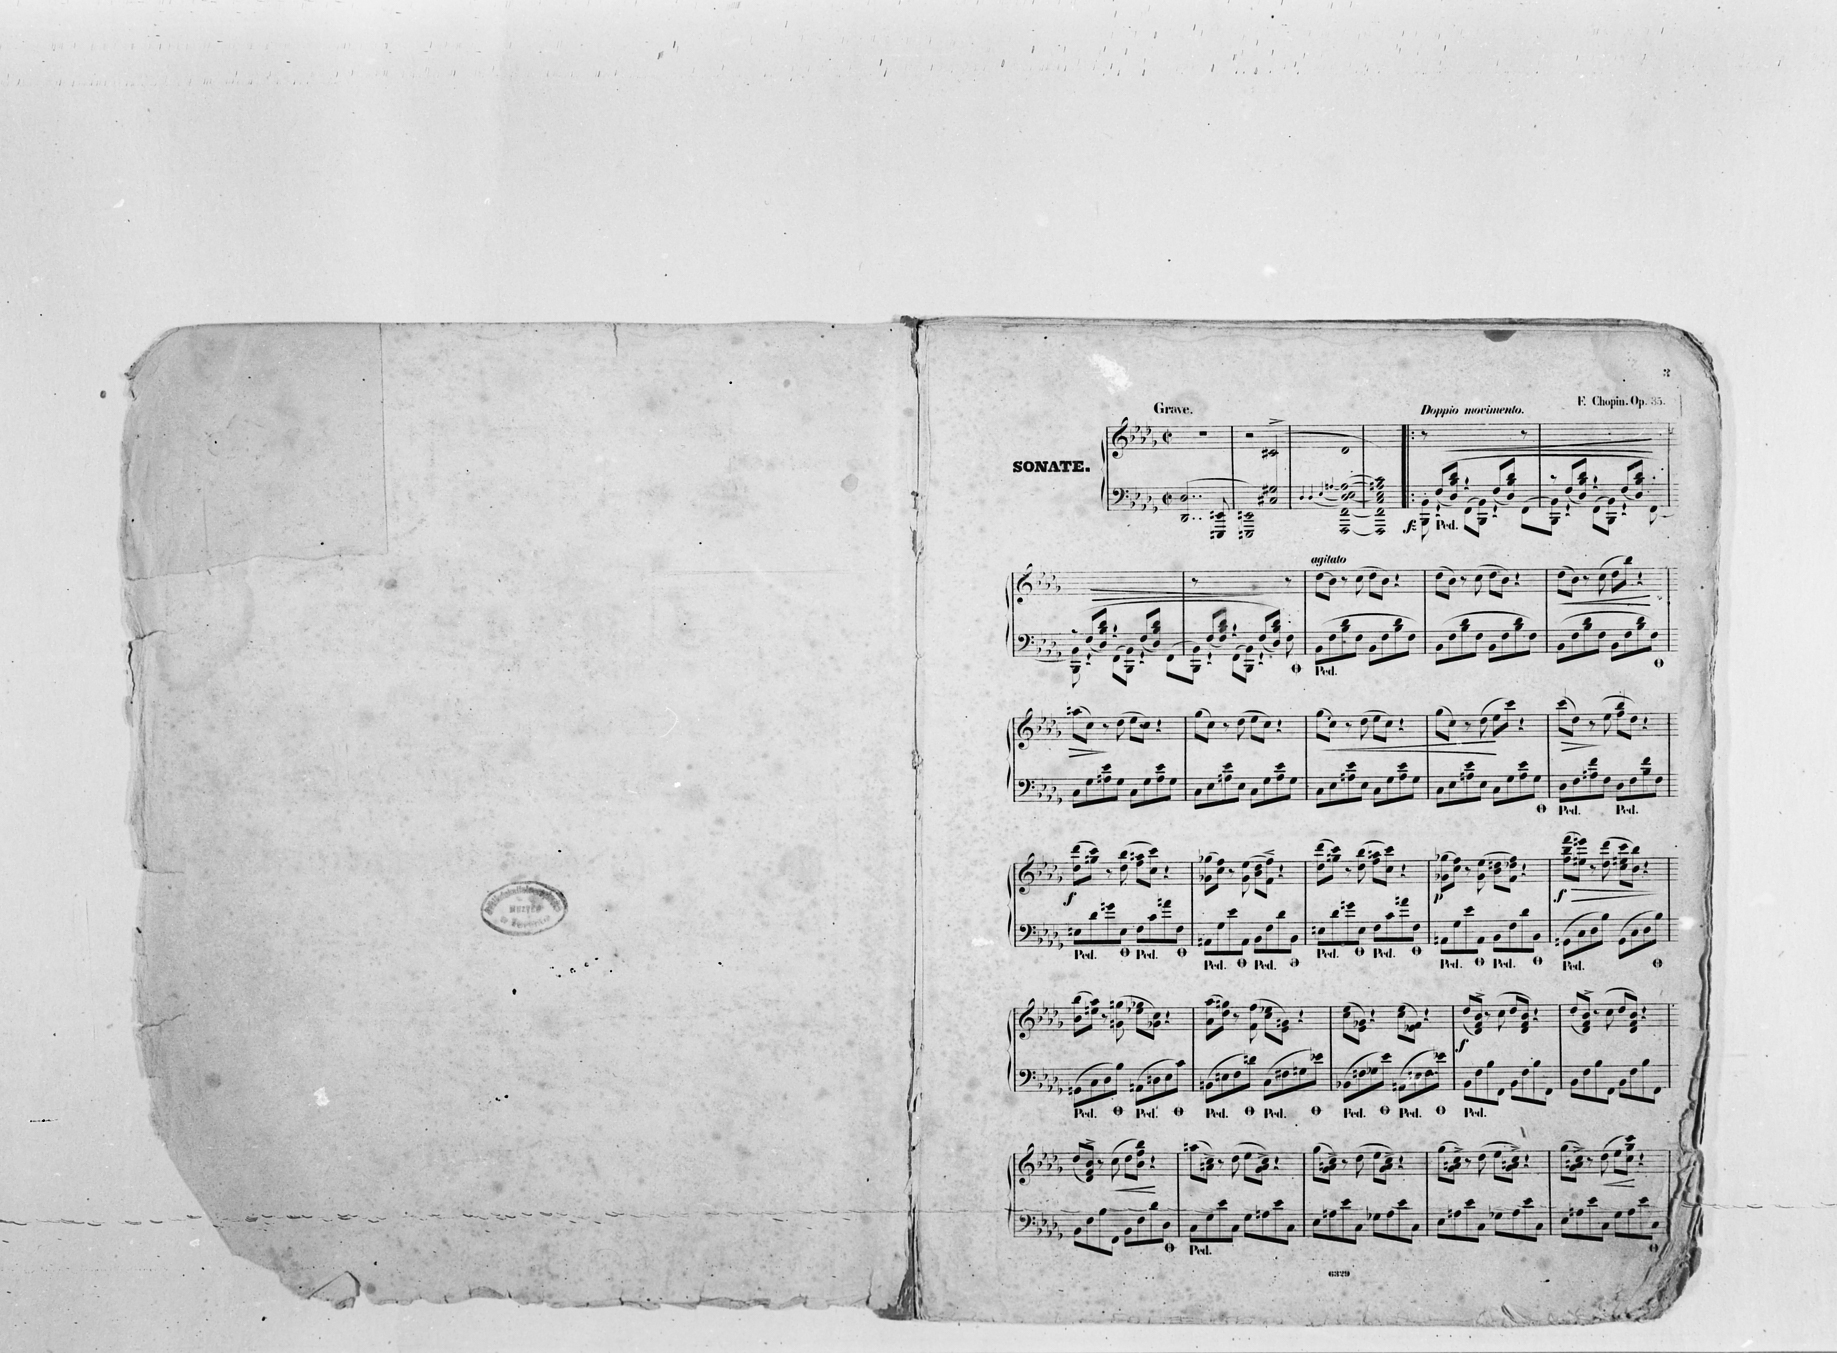 3
Grave.
Doppio movimento.
F. Chopin. Op. 35.
SONATE.
f
Ped.
agitato
Ped.
Ped. Ped.
f p f
Ped. Ped. Ped. Ped. Ped. Ped. Ped. Ped. Ped.
f
Ped. Ped. Ped. Ped. Ped. Ped. Ped.
Ped.
6329
MUZEUM